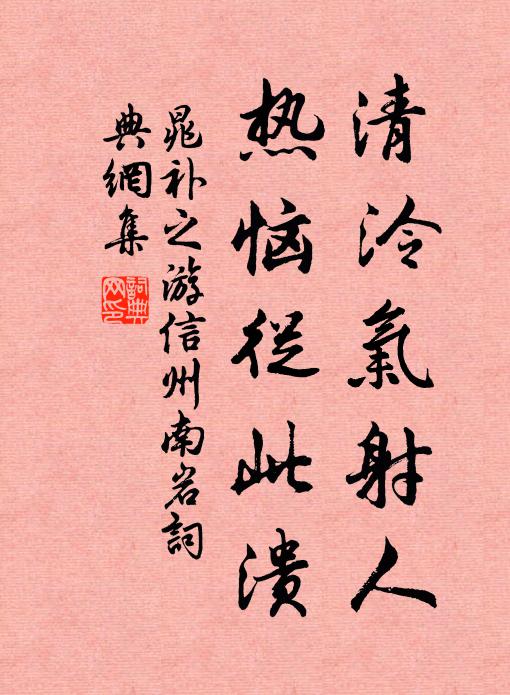 清泠氣射人
热恼從此溃
晁补之游信州南岩詞
典網集
詞典网印